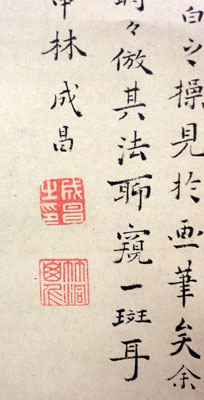 白之操見於画筆矣余
時々倣其法聊窺一斑耳
林成昌
成昌之印